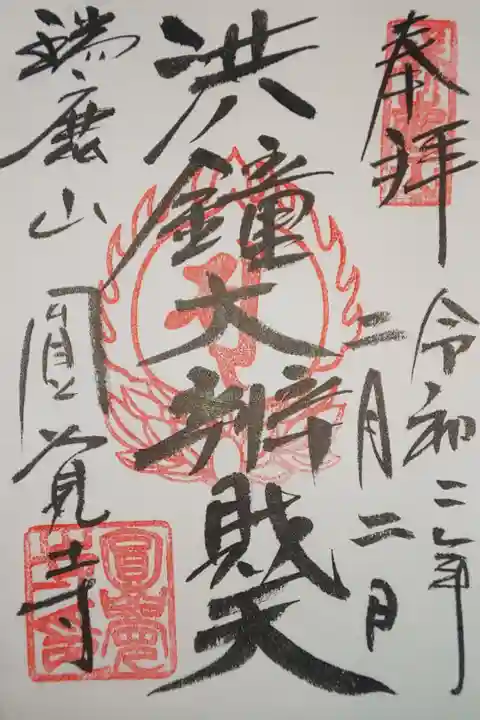 奉拝
令和二年
二月二日
洪鐘大辨財天
瑞鹿山 圓覚寺